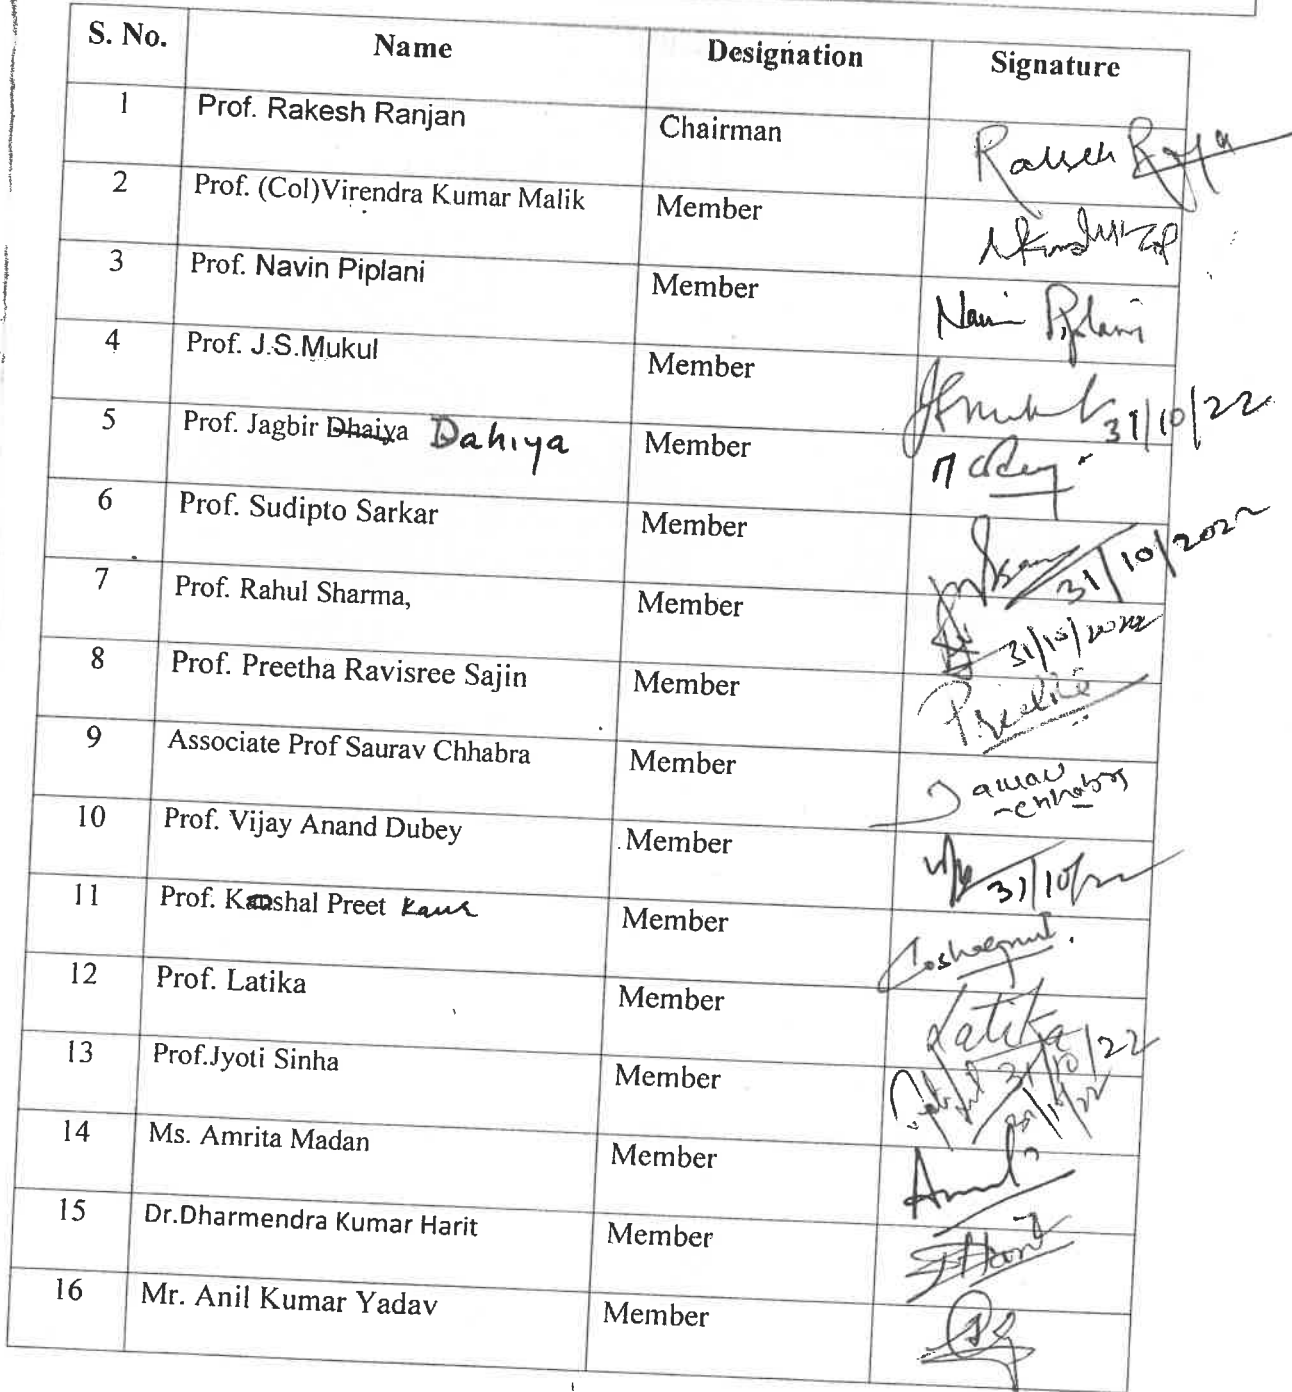 S. No. Name Designation Signature
1 Prof. Rakesh Ranjan Chairman
2 Prof. (Col)Virendra Kumar Malik Member
3 Prof. Navin Piplani Member Navin Piplani
4 Prof. J.S.Mukul Member 31/10/22
5 Prof. Jagbir Dhaiya Dahiya Member
6 Prof. Sudipto Sarkar Member 31/10/2022
7 Prof. Rahul Sharma, Member 31/10/2022
8 Prof. Preetha Ravisree Sajin Member
9 Associate Prof Saurav Chhabra Member Saurav
chhabra
10 Prof. Vijay Anand Dubey Member 31/10/22
11 Prof. Kaushal Preet Kaur Member
12 Prof. Latika Member Latika
31/10/22
13 Prof.Jyoti Sinha Member
14 Ms. Amrita Madan Member
15 Dr.Dharmendra Kumar Harit Member
16 Mr. Anil Kumar Yadav Member